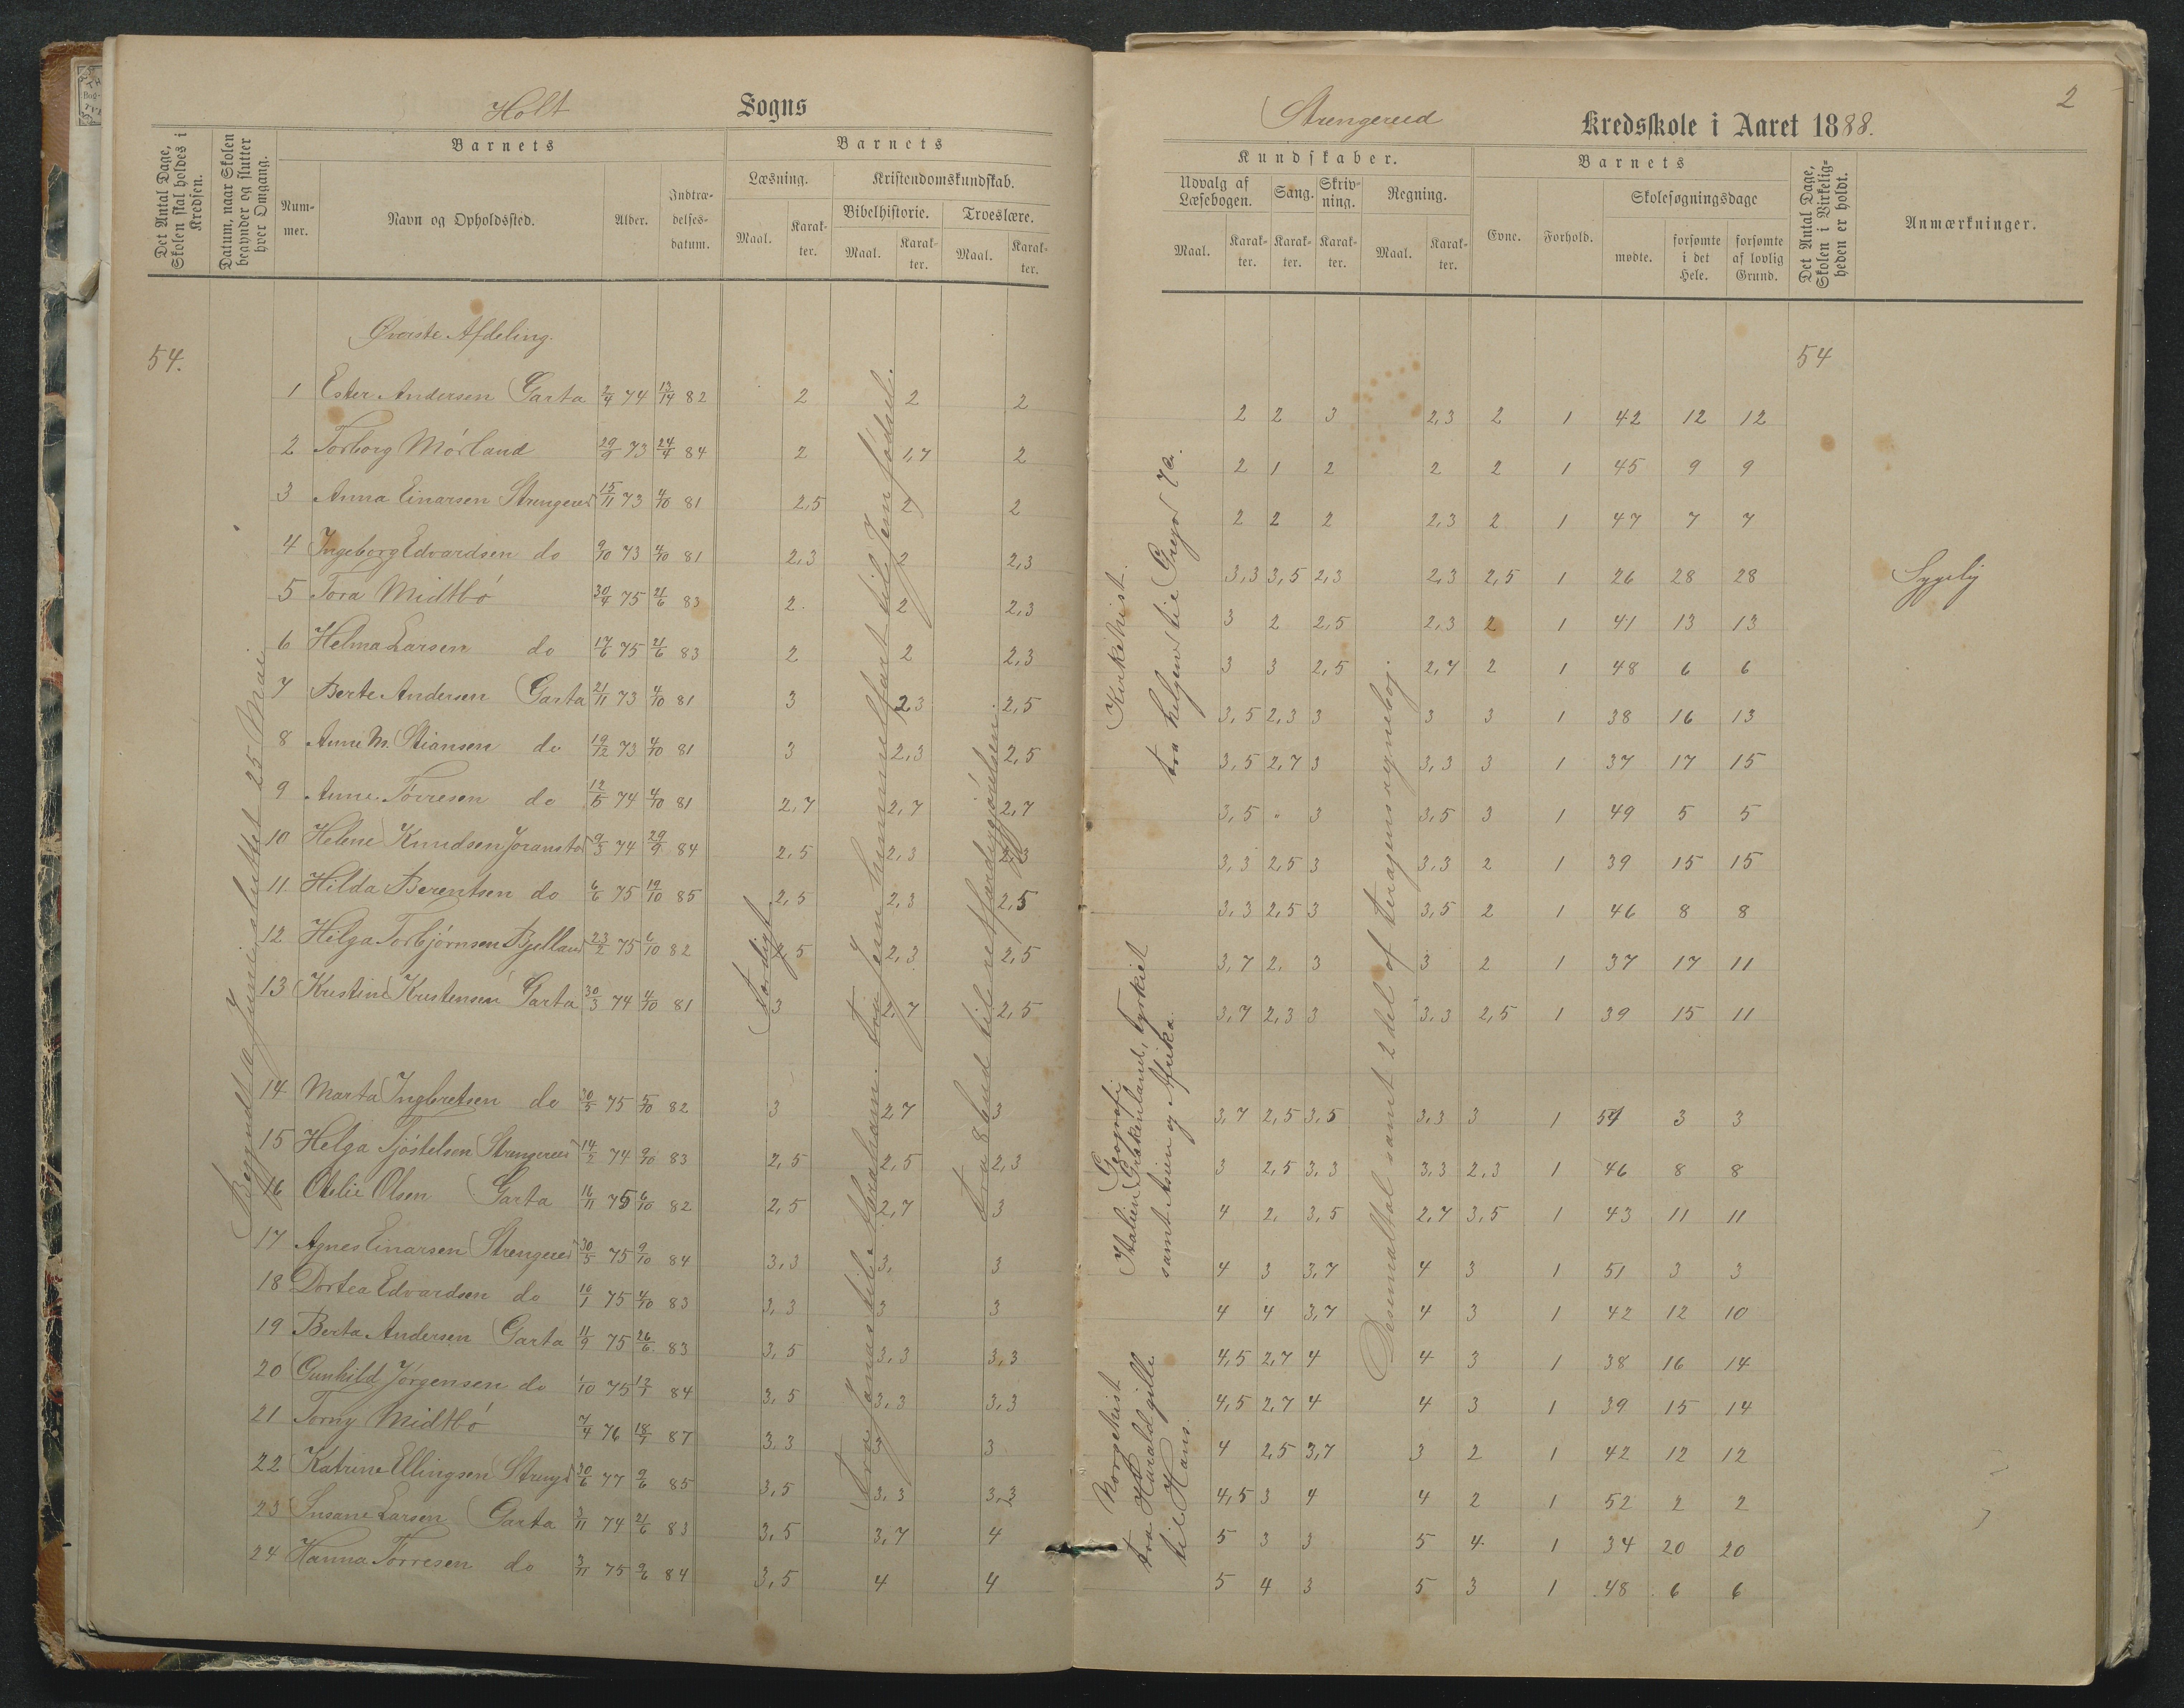 Holt Sogns
Det Antal Dage, Skolen skal holdes i Kredsen.
Datum, naar Skolen begynder og slutter hver Omgang.
Barnets
Nummer.
Navn og Opholdssted.
Alder.
Indtrædelsesdatum.
Barnets
Læsning.
Maal.
Karakter.
Kristendomskundskab.
Bibelhistorie.
Maal.
Karakter.
Troeslære.
Maal.
Karakter.
Øverste Afdeling.
54.
1 Ester Andersen Garta 2/4 74 13/14 82 2 2 2
2 Torborg Mörland 29/9 73 24/4 84 2 1,7 2
3 Anna Einarsen Strengereid 15/11 73 4/10 81 2,5 2 2
4 Ingeborg Edvardsen do 9/10 73 4/10 81 2,3 2 2,3
5 Tora Midtbö 30/4 75 21/6 83 2 2 2,3
6 Helma Larsen do 17/6 75 21/6 83 2 2 2,3
7 Berte Andersen Garta 21/11 73 4/10 81 3 2,3 2,5
8 Anne M. Stiansen do 19/12 73 4/10 81 3 2,3 2,5
9 Anne Törresen do 12/5 74 4/10 81 2,7 2,7 2,7
10 Helene Knudsen Joranstö 9/3 74 29/9 84 2,5 2,3 2,3
11 Hilda Berentsen do 6/6 75 19/10 85 2,5 2,3 2,5
12 Hilga Torbjörnsen Bjelland 23/2 75 6/10 82 2,5 2,3 2,5
13 Kristine Kristensen Garta 30/3 74 4/10 81 3 2,7 2,5
14 Marta Ingbretsen do 30/5 75 5/10 82 3 2,7 3
15 Helga Tjöstelsen Strengereid 14/2 74 9/10 83 2,5 2,5 2,3
16 Otelie Olsen Garta 16/11 75 6/10 82 2,5 2,7 3
17 Agnes Einarsen Strengereid 30/5 75 9/10 84 3,3 3, 3
18 Dortea Edvardsen do 10/1 75 4/10 83 3,3 3 3
19 Berta Andersen Garta 11/9 75 26/6 83 3,5 3,3 3,3
20 Gunhild Jörgensen do 1/10 75 12/1 84 3,5 3,3 3,3
21 Torny Midtbö 7/4 76 18/1 87 3,3 3 3
22 Katrine Ellingsen Strengd 30/6 77 9/6 85 3,5 3,3 3,3
23 Susane Larsen Garta 3/11 74 21/6 83 3,5 3,7 4
24 Hanna Torresen do 3/11 75 9/6 84 3,5 4 4
Begyndt 19 Juni sluttet 25 Mai
Færdigt
Fra Jonas til Abraham. Fra Jesu himmelfart til Jesu födsel.
Fra 8 bud til retfærdiggjörelsen
Strengereid Kredsskole i Aaret 1888.
2
Kundskaber.
Udvalg af Læsebogen.
Maal.
Karakter.
Sang.
Karakter.
Skrivning.
Karakter.
Regning.
Maal.
Karakter.
Barnets
Evne.
Forhold.
Skolesøgningsdage
mødte.
forsømte i det Hele.
forsømte af lovlig Grund.
Det Antal Dage, Skolen i Virkeligheden er holdt.
Anmærkninger.
54
2 2 3 2,3 2 1 42 12 12
2 1 2 2 2 1 45 9 9
2 2 2 2,3 2 1 47 7 7
3,3 3,5 2,3 2,3 2,5 1 26 28 28 Sygelig
3 2 2,5 2,3 2 1 41 13 13
3 3 2,5 2,7 2 1 48 6 6
3,5 2,3 3 3 3 1 38 16 13
3,5 2,7 3 3,3 3 1 37 17 15
3,5 " 3 3,5 3 1 49 5 5
3,3 2,5 3 3,3 2 1 39 15 15
3,3 2,5 3 3,5 2 1 46 8 8
3,7 2, 3 3 2 1 37 17 11
3,7 2,3 3 3,3 2,5 1 39 15 11
3,7 2,5 3,5 3,3 3 1 51 3 3
3 2,5 3,3 3,3 2,3 1 46 8 8
4 2, 3,5 2,7 3,5 1 43 11 11
4 3 3,7 4 3 1 51 3 3
4 4 3,7 4 3 1 42 12 10
4,5 2,7 4 4 3 1 38 16 14
4,5 2,7 4 4 3 1 39 15 14
4 2,5 3,7 3 2 1 42 12 12
4,5 3 4 4 2 1 52 2 2
5 3 3 5 4 1 34 20 20
5 4 3 5 3 1 48 6 6
Kirkehist.
fra helgen til Gregor 7 de
Geografi
Italien Grækenland, tyrkiet
samt Asien og Afrika.
Norgeshist
fra Harald gille
til Hans.
Desemaltal samt 2 del af teragens regnebog.